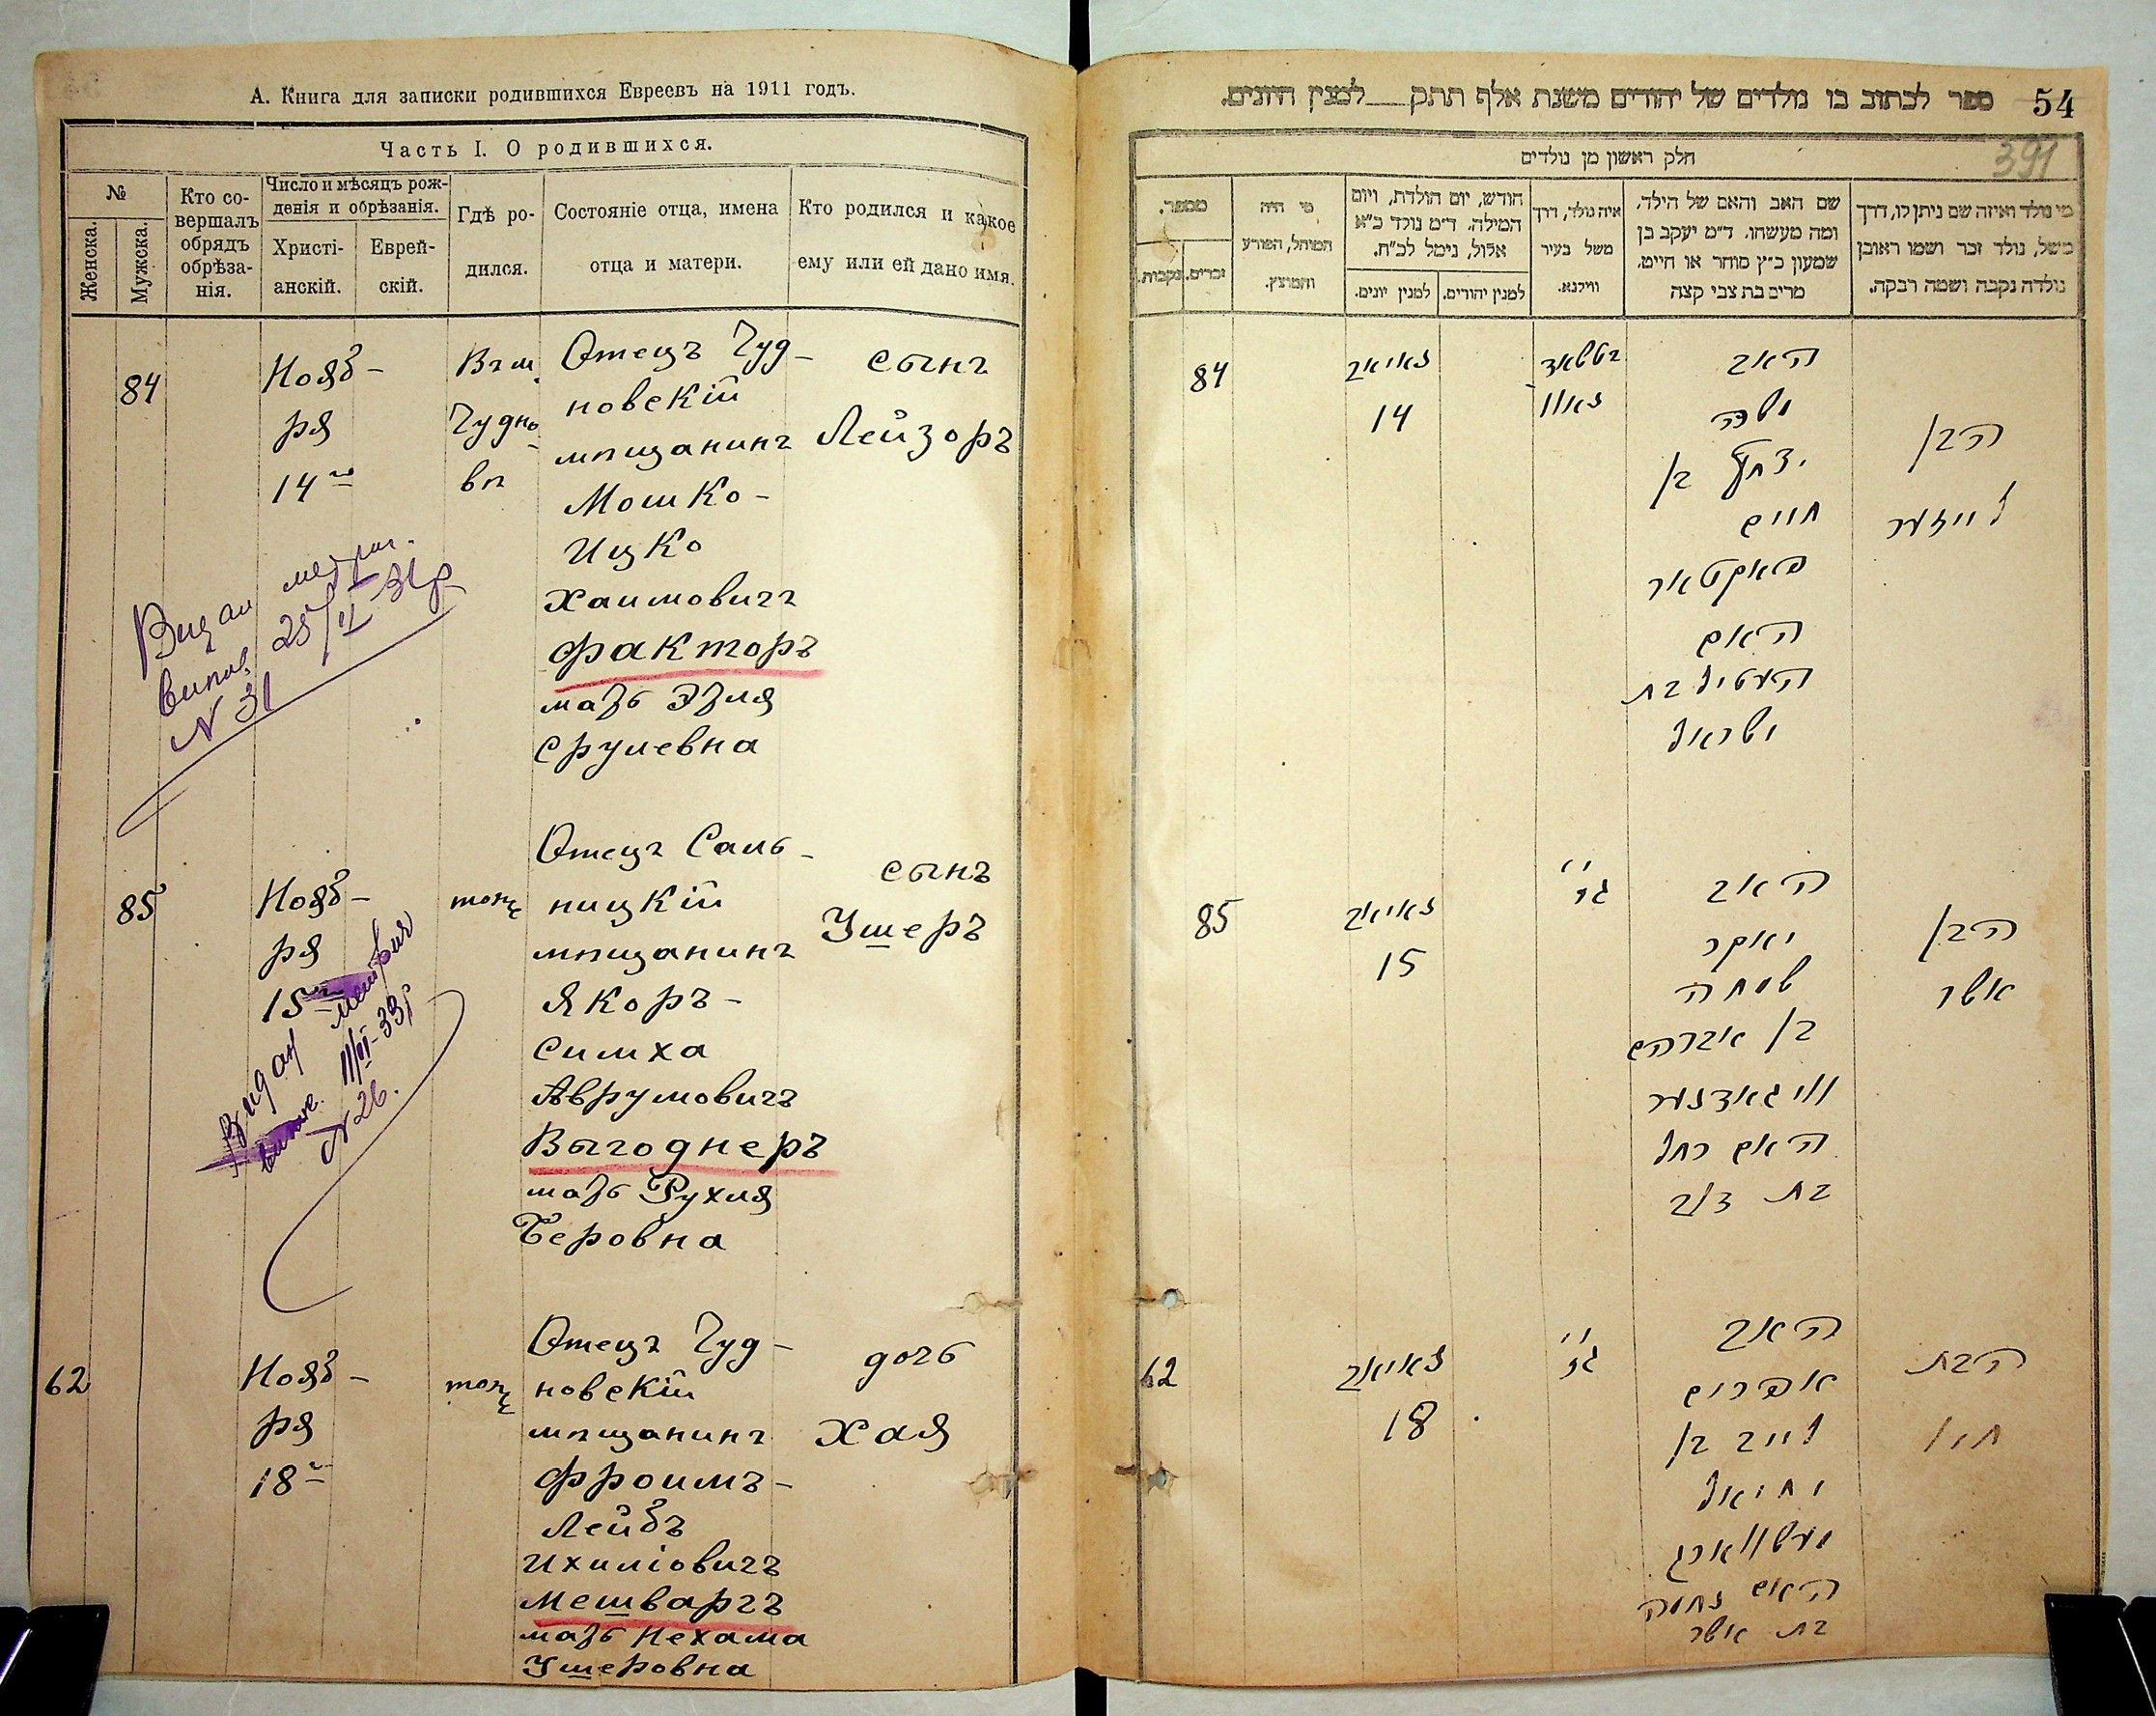 А. Книга для записки родившихся Евреевъ на 1911 годъ.
Часть I. О родившихся.
№
Женска.
Мужска.
Кто со-
вершалъ
обрядъ
обрѣза-
нія.
Число и мѣсяцъ рож-
денія и обрѣзанія.
Христі-
анскій.
Еврей-
скій.
Гдѣ ро-
дился.
Состояніе отца, имена
отца и матери.
Кто родился и какое
ему или ей дано имя.
84
Нояб-
ря
14го
Въ м.
Чудно-
вѣ
Отецъ Чуд-
новскій
мѣщанинъ
Мошко-
Ицко
Хаимовичъ
Факторъ
мать Этля
Срулевна
сынъ
Лейзоръ
25/II 31р
N 31
85
Нояб-
ря
15го
тоже
Отецъ Саль-
ницкій
мѣщанинъ
Якоръ-
Симха
Аврумовичъ
Выгоднеръ
мать Рухля
Беровна
сынъ
Ушеръ
Видан метрич
N 26.
62
Нояб-
ря
18го
тоже
Отецъ Чуд-
новскій
мѣщанинъ
Фроимъ-
Лейбъ
Ихиліовичъ
Мешваргъ
мать Нехама
Ушеровна
дочь
Хая
ספר לכתוב בו נולדים של יהודים משנת אלף תתק למנין היונים.
54
391
חלק ראשון מן נולדים
מספר.
זכרים.
נקבות.
מי היה
המוהל, הפורע
והמוצץ.
חודש, יום הולדת, ויום
המילה. ד״מ נולד כ״א
אלול, נימל לכ״ח.
למנין יונים.
למנין יהודים.
איה נולד, דרך
משל בעיר
ווילנא.
שם האב והאם של הילד,
ומה מעשהו. ד״מ יעקב בן
שמעון כ״ץ סוחר או חייט.
מרים בת צבי קצה
מי נולד ואיזה שם ניתן לו, דרך
משל, נולד זכר ושמו ראובן
נולדה נקבה ושמה רבקה.
84
נאיאב
14
האב
משה
יצחק בן
חיים
פאקטאר
האם
העטיל בת
ישראל
הבן
לייזער
85
נאיאב
15
האב
יאקר
שמחה
בן אברהם
וויגאדנער
האם רחל
בת
הבן
אשר
62
נאיאב
18
האב
אפרים
לייב בן
יחיאל
מעשווארג
האם נחמה
בת אשר
הבת
חיי